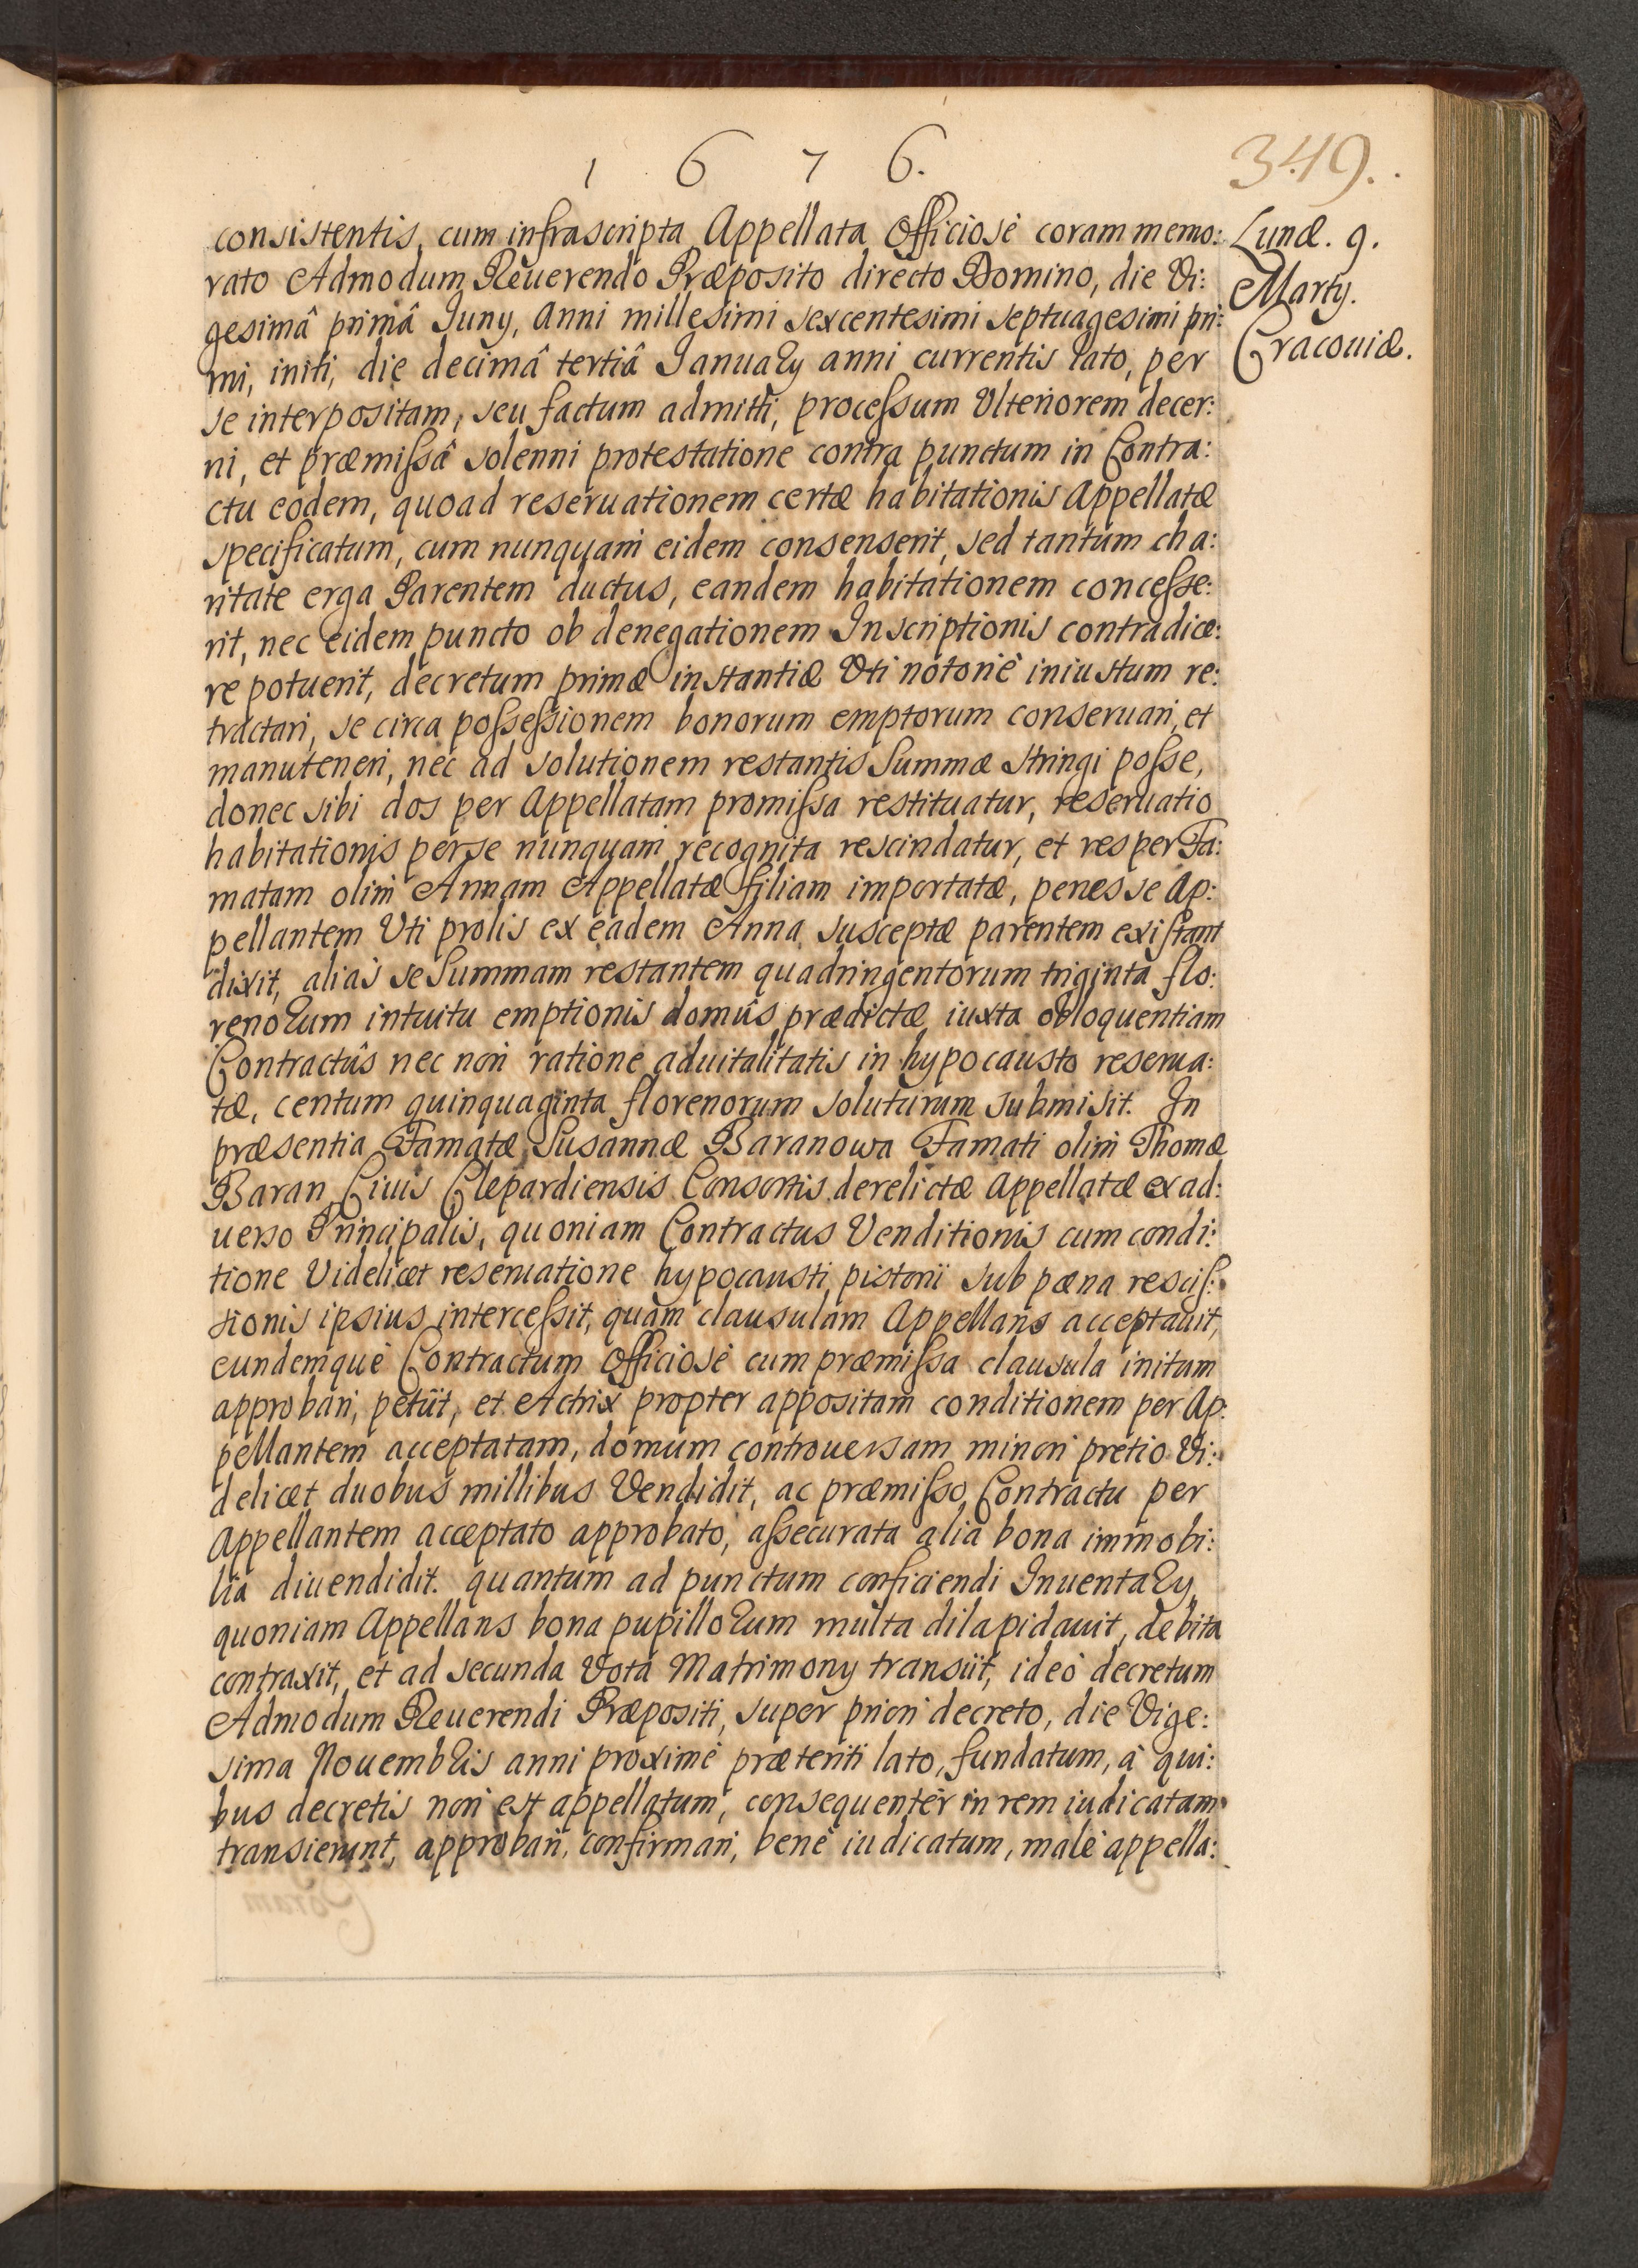 1 6 7 6.
349.
Lunæ. 9.
Martÿ.
Cracouiæ.
consistentis, cum infrascripta Appellata Officiosè coram memo:
rato Admodum Reuerendo Præposito directo Domino, die Vi:
gesimâ primâ Iunÿ, Anni millesimi sexcentesimi septuagesimi pri:
mi, initi, die decimâ tertiâ Ianuarÿ anni currentis lato, per
se interpositam, seu factum admitti, processum Vlteriorem decer:
ni, et præmissâ solenni protestatione contra punctum in Contra:
ctu eodem, quoad reseruationem certæ habitationis Appellatæ
specificatum, cum nunquam eidem consenserit, sed tantum cha:
ritate erga Parentem ductus, eandem habitationem concesse:
rit, nec eidem puncto ob denegationem Inscriptionis contradice:
re potuerit, decretum primæ instantiæ Vti notoriè iniustum re:
tractari, se circa possessionem bonorum emptorum conseruari, et
manuteneri, nec ad solutionem restantis Summæ stringi posse,
donec sibi dos per Appellatam promissa restituatur, reseruatio
habitationis per se nunquam recognita rescindatur, et res per Fa:
matam olim Annam Appellatæ filiam importatæ, penes se Ap:
pellantem Vti prolis ex eadem Anna susceptæ parentem existant
dixit, alias se Summam restantem quadringentorum triginta flo:
renorum intuitu emptionis domûs prædictæ iuxta obloquentiam
Contractûs nec non ratione aduitalitatis in hypocausto reserua:
tæ, centum quinquaginta florenorum soluturum submisit. In
præsentia Famatæ Susannæ Baranowa Famati olim Thomæ
Baran Ciuis Clepardiensis Consortis derelictæ Appellatæ ex ad:
uerso Principalis, quoniam Contractus Venditionis cum condi:
tione Videlicet reseruatione hypocausti pistorii sub pæna rescis:
sionis ipsius intercessit, quam clausulam Appellans acceptauit,
eundemque Contractum Officiosè cum præmissa clausula initum
approbari, petiit, et Actrix propter appositam conditionem per Ap:
pellantem acceptatam, domum controuersam minori pretio Vi:
delicet duobus millibus Vendidit, ac præmisso Contractu per
Appellantem acceptato approbato, assecurata alia bona immobi:
lia diuendidit. quantum ad punctum conficiendi Inuentarÿ,
quoniam Appellans bona pupillorum multa dilapidauit, debita
contraxit, et ad secunda Vota Matrimonÿ transiit, ideò decretum
Admodum Reuerendi Præpositi, super priori decreto, die Vige:
sima Nouembris anni proximè præteriti lato, fundatum, à qui:
bus decretis non est appellatum, consequenter in rem iudicatam
transierunt, approbari, confirmari, benè iudicatum, malè appella: